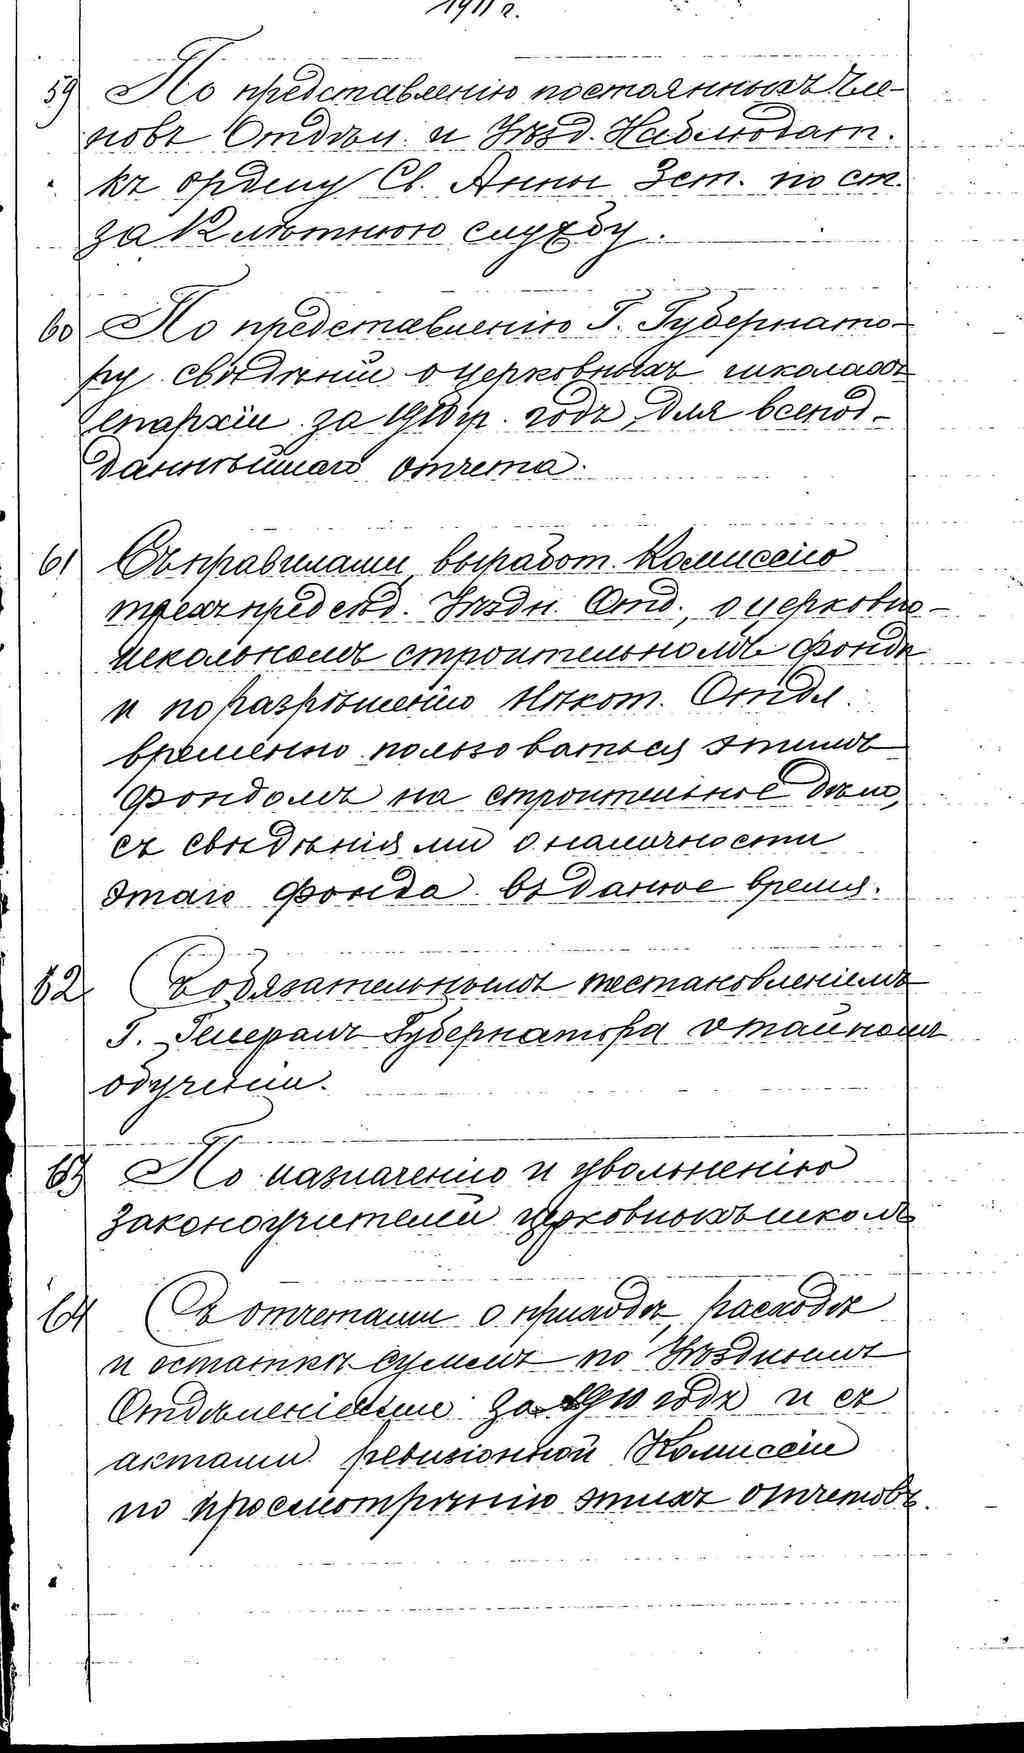 1911 г.
59 По представленію постоянныхъ Чле-
новъ Отдѣл. и Уѣзд. Наблюдат.
къ ордену Св. Анны 3 ст. по ст.
за 12 лѣтнюю службу.
60 По представленію Г. Губернато-
ру свѣдѣній о церковныхъ школахъ
епархіи за 1910 гр. годъ, для всепод-
даннѣйшаго отчета.
61 Съ правилами, выработ. Комиссіею
трехъ предсѣд. Уѣздн. Отд., о церковно-
школьномъ строительномъ фондѣ
и по разрѣшенію нѣкот. Отдл.
временно пользоваться этимъ
фондомъ на строительное дѣло,
съ свѣдѣніями о наличности
этаго фонда въ данное время.
62 Съ обязательнымъ постановленіемъ
Г. Генералъ Губернатора о тайномъ
обученіи.
63 По назначенію и увольненію
законоучителей церковныхъ школъ
64 Съ отчетами о приходѣ, расходѣ
и остаткѣ суммъ по Уѣзднымъ
Отдѣленіямъ за 1910 годъ и съ
актами ревизіонной Комиссіи
по просмотрѣнію этихъ отчетовъ.